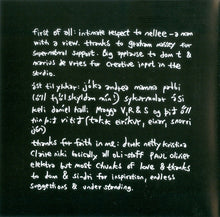 first of all: intimate respect to nellee - a man
with a view. thanks to graham massey for
supernatural support. big applause to dom t &
marius de vries for creative input in the
studio.
ást til ykkar: jóka andrea mamma pabbi
(öll fjölskyldan mín!) sykurmolar Sí
keli daníel halli moggy V,R & S og öll
þið vitið (takk eiríkur, einar, snorri
jón)
thanks for faith in me: derek netty kristina
claire niki basically all oli-staff PAUL OLIVER
elektra but most chunks of love & thanks
to dom & sindri for inspiration, endless
suggestions & understanding.